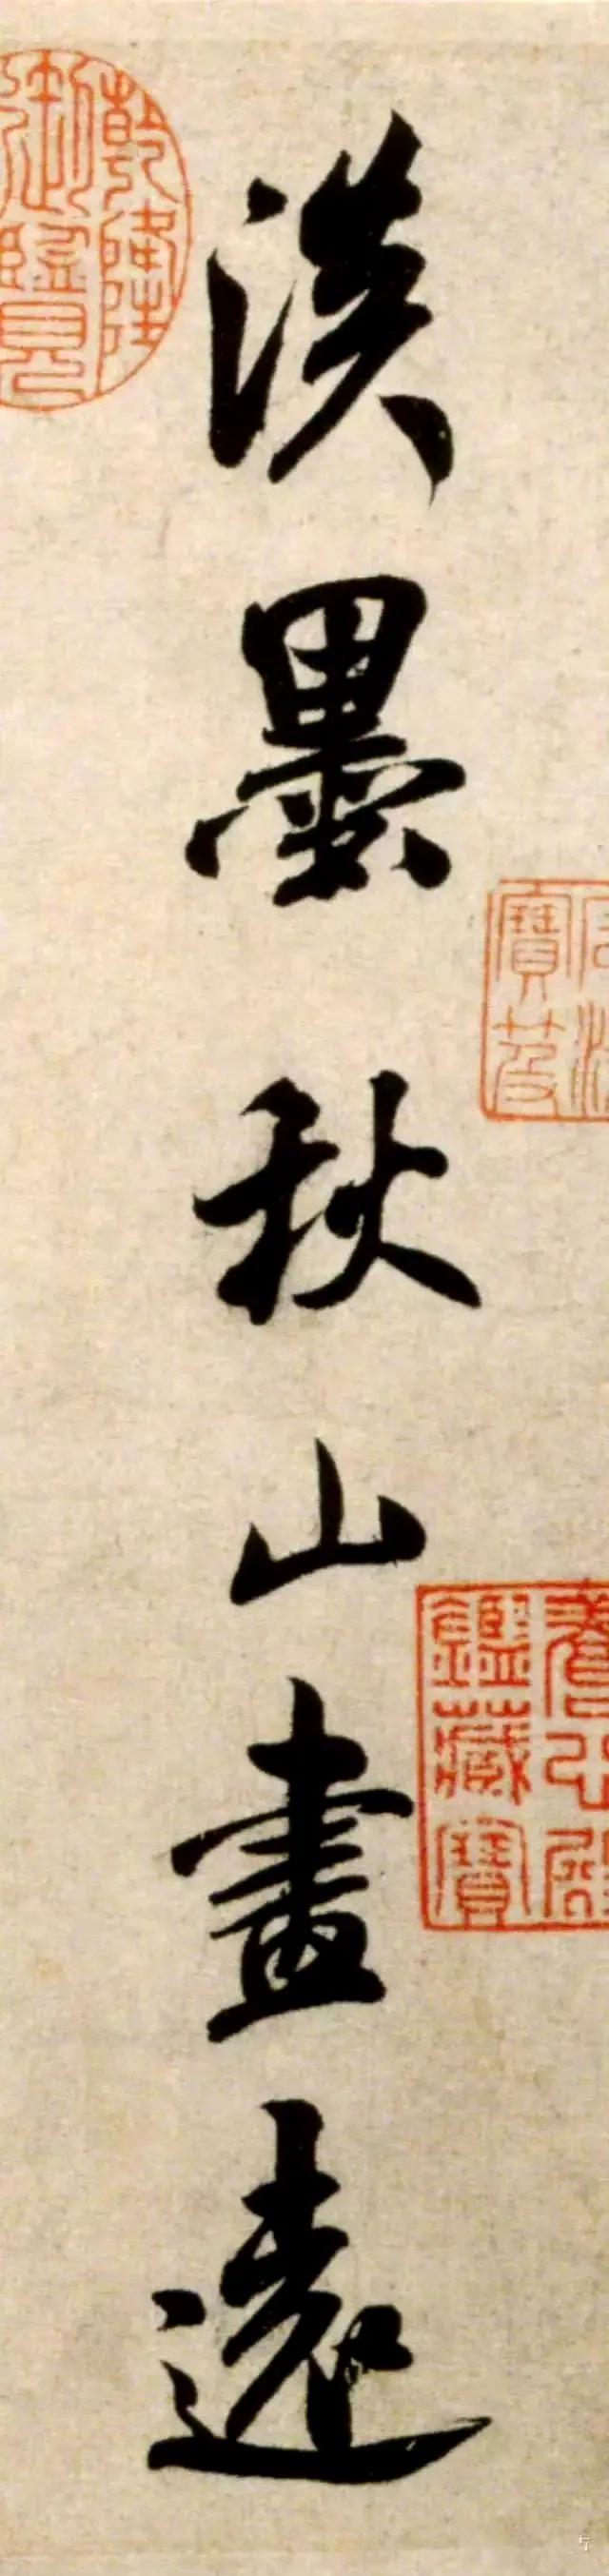 淡墨秋山畫遠
乾隆
御覽
石渠
寶笈
養心殿
鑑藏寶